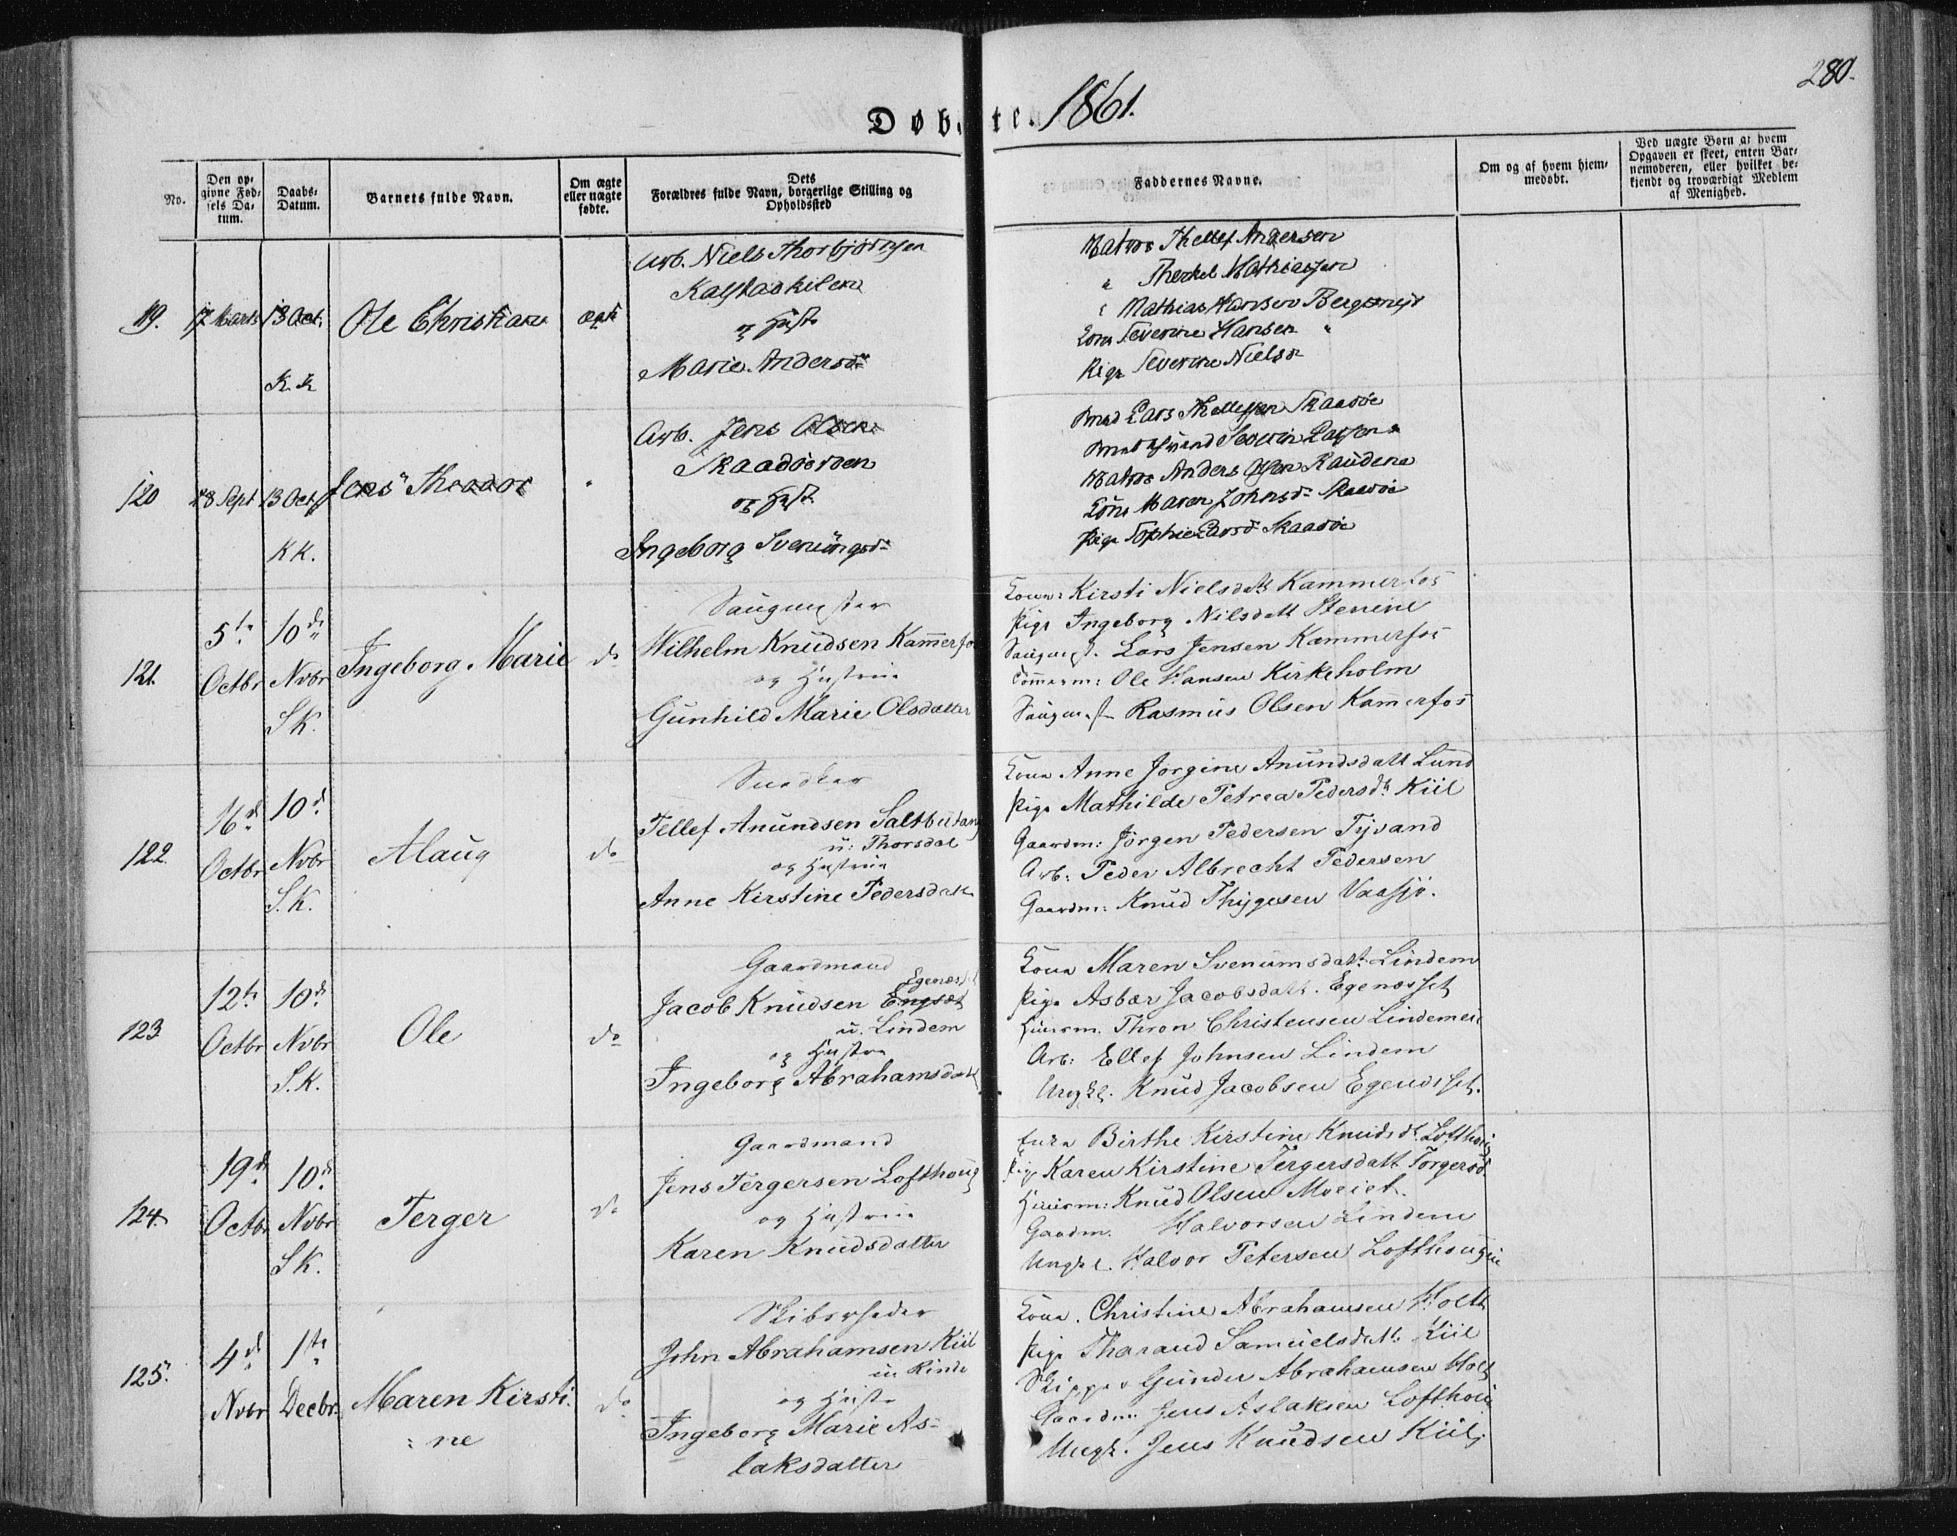 280.
Døbte. 1861.
No.
Den op-
givne Fød-
sels Da-
tum.
Daabs-
Datum.
Barnets fulde Navn.
Om ægte
eller uægte
fødte.
Dets
Forældres fulde Navn, borgerlige Stilling og
Opholdssted
Faddernes Navne.
Om og af hvem hjem-
medøbt.
Ved uægte Børn at hvem
Opgaven er skeet, enten Bar-
nemoderen, eller hvilket be-
kjendt og troværdigt Medlem
af Menighed.
119. 17 Marts 13 Oct. K. K
Ole Christian
ægte
Arb. Niels Thorbjørnsen
Kalstadkilen
og Hust
Marie Andersd
Matros Thellef Andersen
" Therkel Mathiassen
" Mathias Hansen
Kone Severine Hansen "
Pige Severine Nielsd
120 18 Sept 13 Oct KK.
Jens Theodor
"
Arb. Jens Olsen
Skaadøeroen
og Hust
Ingeborg Sveningsd
Lars Thellefsen Skaadøe
Severin Larsen
Matros Anders Olsen
Kone Maren Johnsd Skaadøe
Pige Sophie Larsd Skaadøe
121. 5te Octbr 10de Nvbr S.K.
Ingeborg Marie
do
Saugmester
Wilhelm Knudsen Kammerfos
og Hustrue
Gunhild Marie Olsdatter
Kone: Kirsti Nielsdatt Kammerfos
Pige Ingeborg Nilsdatt Stenene
Saugmest. Lars Jensen Kammerfos
Tømmerm: Ole Hansen Kirkeholm
Saugmest Rasmus Olsen Kammerfos
122. 16d Octbr 10d Nvbr S.K.
Alaug
do
Snedker
Tellef Anundsen Saltbutang
u: Thorsdal
og Hustrue
Anne Kirstine Pedersdatt
Kone Anne Jørgine Anundsdatt Lund
Pige Mathilde Petrea Pedersdt Kiil
Gaardm: Jörgen Pedersen Tyvand
Arb: Peder Albrecht Pedersen
Gaardm: Knud Thygesen Vaasjø.
123 12te Octbr 10d Nvbr S.K.
Ole
do
Gaardmand
Egenæsset
Jacob Knudsen Engsæt
u. Lindem
og Hustru
Ingeborg Abrahamsdatt
Kone Maren Svenumsdatt Lindem
Pige Asbær Jacobsdatt. Egenæsset
Huusm. Thron Christensen Lindemeie
Arb: Ellef Johnsen Lindem
Ungkl. Knud Jacobsen Egenæsset.
124. 19d Octbr 10d Nvbr S.K.
Terger
do
Gaardmand
Jens Tergersen Lofthoug
og Hustrue
Karen Knudsdatter
Birthe Kirstine Knudsdt Lofthoug
Pige Karen Kirstine Tergersdatt Torgersd
Huusm: Knud Olsen Moeiet.
Gaardm. Halvorsen Lindem
Ungkl. Halvor Petersen Lofthougeie
125. 4d Nvbr 1ste Decbr.
Maren Kirsti-
ne
do
Skibsrheder
John Abrahamsen Kiil
u. Rinde
og Hustr
Ingeborg Marie As-
laksdatter
Kone. Christine Abrahamsen Holt
Pige Tharand Samuelsdatt. Kiil
Skipper Gunder Abrahamsen Holt
Gaardm: Jens Aslaksen Lofthoug
Ungk. Jens Knudsen Kiil,